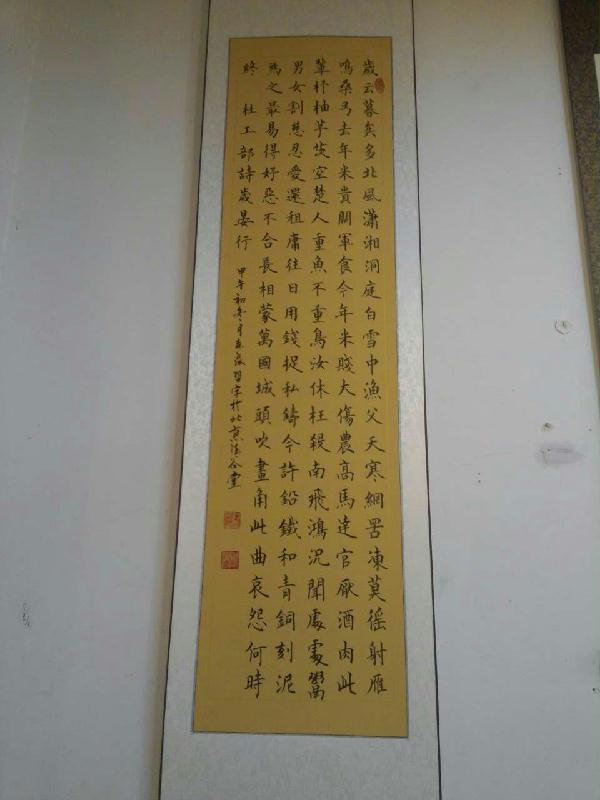 歲云暮矣多北風瀟湘洞庭白雪中漁父天寒網罟凍莫徭射雁
鳴桑弓去年米貴闕軍食今年米賤大傷農高馬達官厭酒肉此
輩杼柚茅茨空楚人重魚不重鳥汝休枉殺南飛鴻況聞處處鬻
男女割慈忍愛還租庸往日用錢捉私鑄今許鉛鐵和青銅刻泥
為之最易得好惡不合長相蒙萬國城頭吹畫角此曲哀怨何時
終 杜工部詩歲晏行
甲午初冬月 習字於北京 谷堂